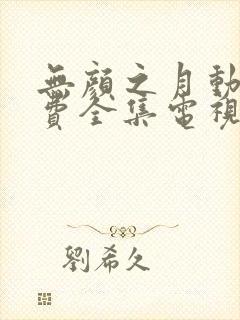 無顏之月動
費全集電視
劉希久